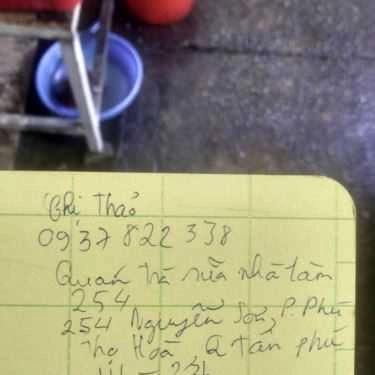 Chị Thảo
0937 822 338
Quán trà sữa nhà làm
254
254 Nguyễn Sơn, P. Phú
Thọ Hoà Q tân phú